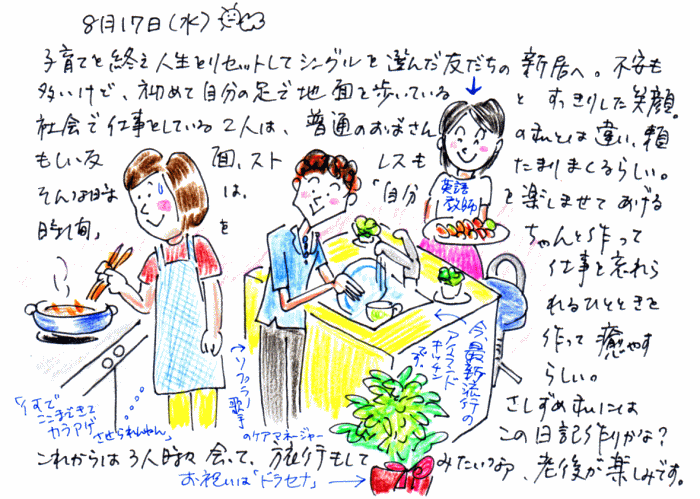 8月17日(水)
子育てを終え人生をリセットしてシングルを選んだ友だちの新居へ。不安も
多いけど、初めて自分の足で地面を歩いているとすっきりした笑顔。
社会で仕事をしている2人は、普通のおばさんのむぅとは違い、頼
もしい反面、ストレスもたまりまくるらしい。
そんな時は、「自分を楽しませてあげる
時間」をちゃんと作って
仕事を忘れら
れるひとときを
作って癒やす
らしい。
さしずめむぅには
この日記作りかな?
これからは3人時々会って、旅行もしてみたいなぁ、老後が楽しみです。
英語
教師
今、最新流行の
アイランド
キッチン
です
ソプラノ
歌手
のケアマネージャー
「何で
ここまできて
カラアゲ
させられんねん」
お祝いは「ドラセナ」